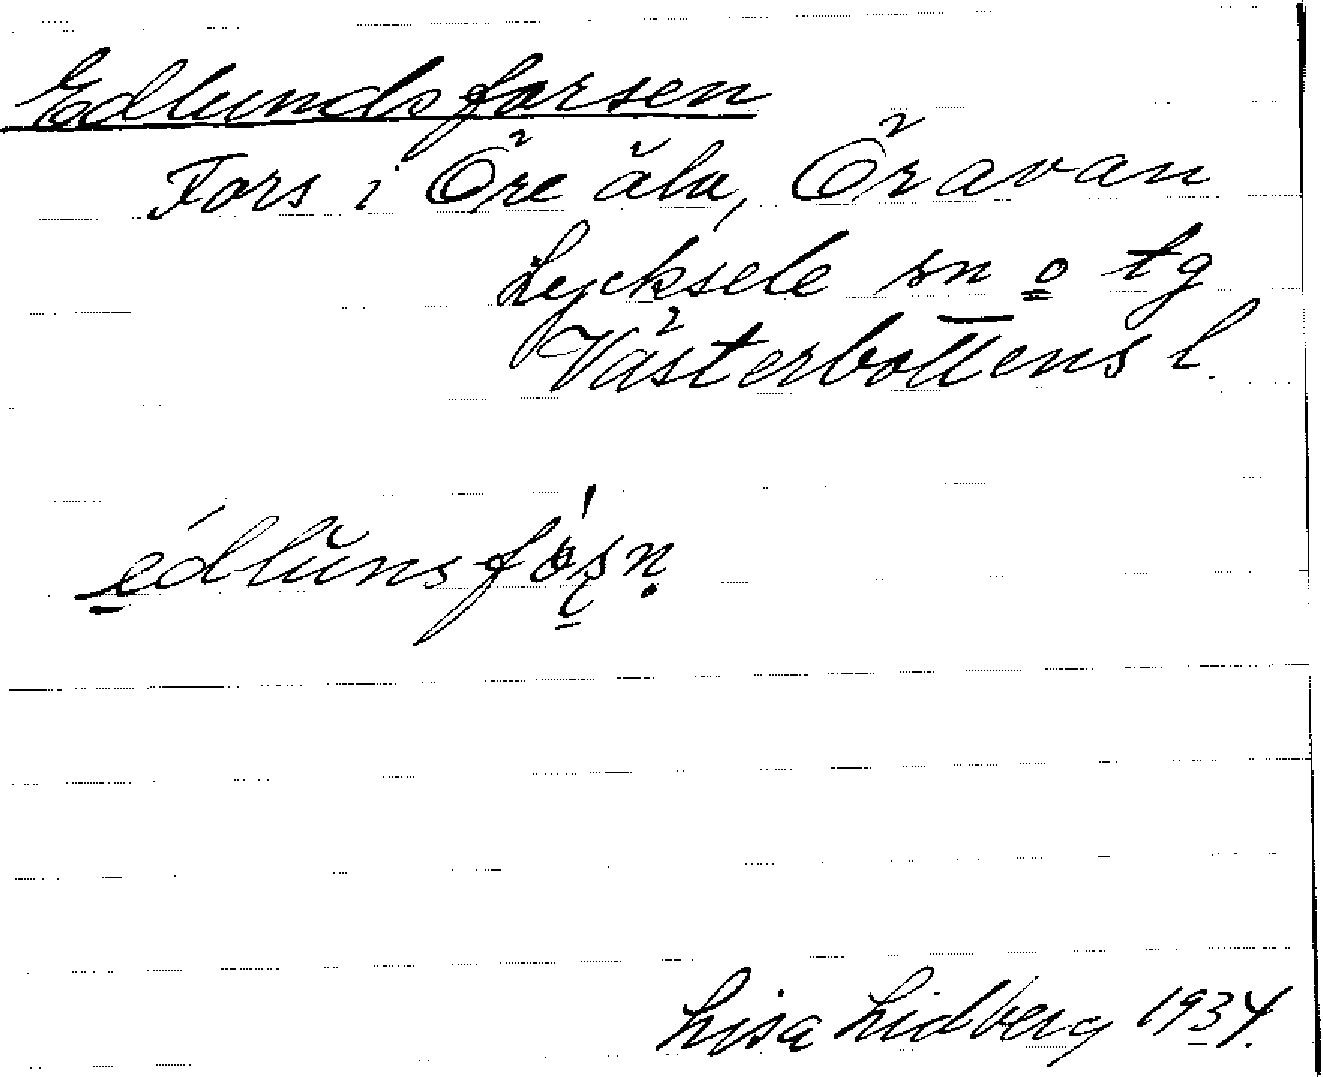 Edlundsforsen
Fors i Öre älv, Öravan
Lycksele sn o tg
Västerbottens l.
Lisa Lidberg 1934.